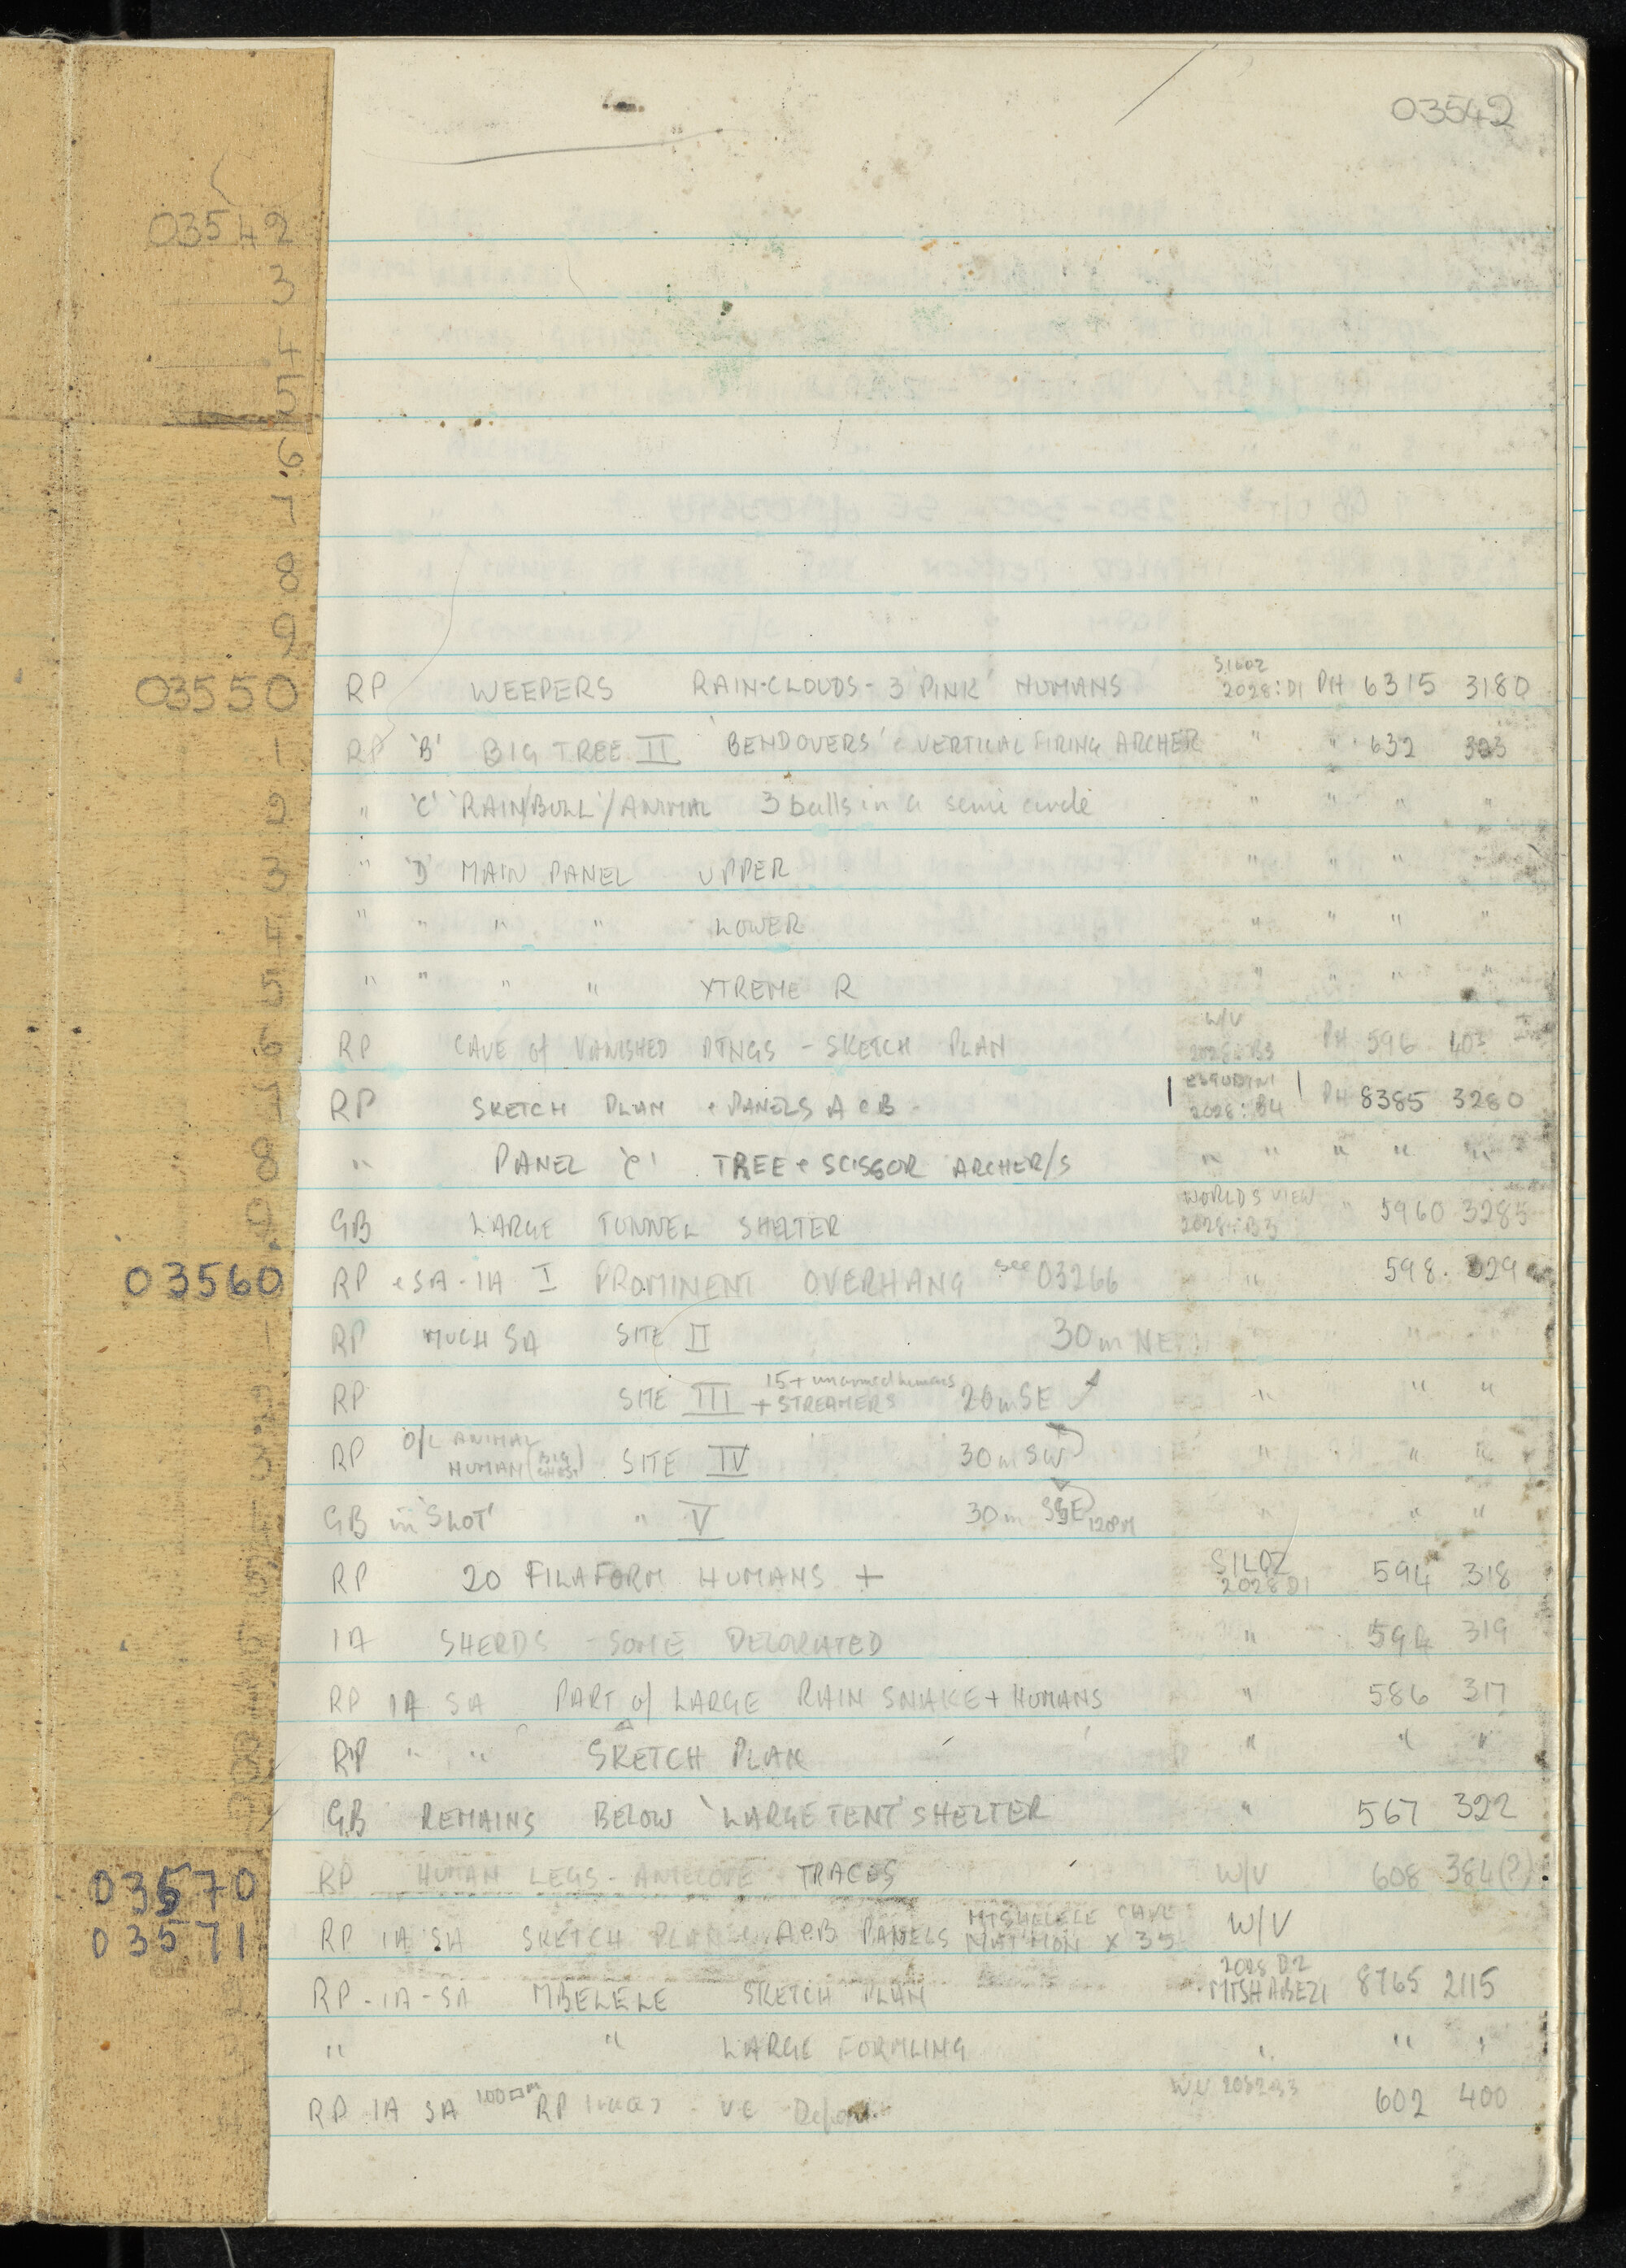 03542
03542
3
4
5
6
7
8
9
03550 RP WEEPERS RAIN-CLOUDS - 3 'PINK' HUMANS SILOZ 2028:D1 PH 6315 3180
1 RP 'B' BIG TREE II 'BENDOVERS' & VERTICAL FIRING ARCHER " " 632 323
2 " 'C' 'RAIN/BULL'/ANIMAL 3 balls in a semi circle " " " "
3 " 'D' MAIN PANEL UPPER " " " "
4 " " " " LOWER " " " "
5 " " " " XTREME R " " " "
6 RP CAVE of VANISHED PTNGS - SKETCH PLAN W/V 2028:B3 PH 596 403
7 RP SKETCH PLAN & PANELS A & B 2028:B4 PH 8385 3280
8 " PANEL 'C' TREE & SCISSOR ARCHER/S " " " " "
9 GB LARGE TUNNEL SHELTER WORLDS VIEW 2028:B3 " 5960 3285
03560 RP & SA-IA I PROMINENT OVERHANG see 03266 " 598 329
1 RP MUCH SA SITE II 30m NE " " "
2 RP SITE III 15+ unarmed humans + STREAMERS 20m SE " " "
3 RP O/L ANIMAL HUMAN (BIG CHEST) SITE IV 30m SW " " "
GB in 'SLOT' " V 30m SSE 120PM " " "
RP 20 FILAFORM HUMANS + SILOZ 2028 D1 594 318
IA SHERDS - SOME DECORATED " 594 319
RP IA SA PART of LARGE RAIN SNAKE + HUMANS " 586 317
RP " " SKETCH PLAN " " "
GB REMAINS BELOW 'LARGE TENT' SHELTER " 567 322
03570 RP HUMAN LEGS - ANTELOPE TRACES W/V 608 384(?)
03571 RP IA SA SKETCH PLAN & A & B PANELS MTSHELELE CAVE NAT MON X 35 W/V
RP-IA-SA MBELELE SKETCH PLAN 2028 D2 MTSHABEZI 8765 2115
" " LARGE FORMLING " " "
RP IA SA 100□m RP - VG Deposit 602 400